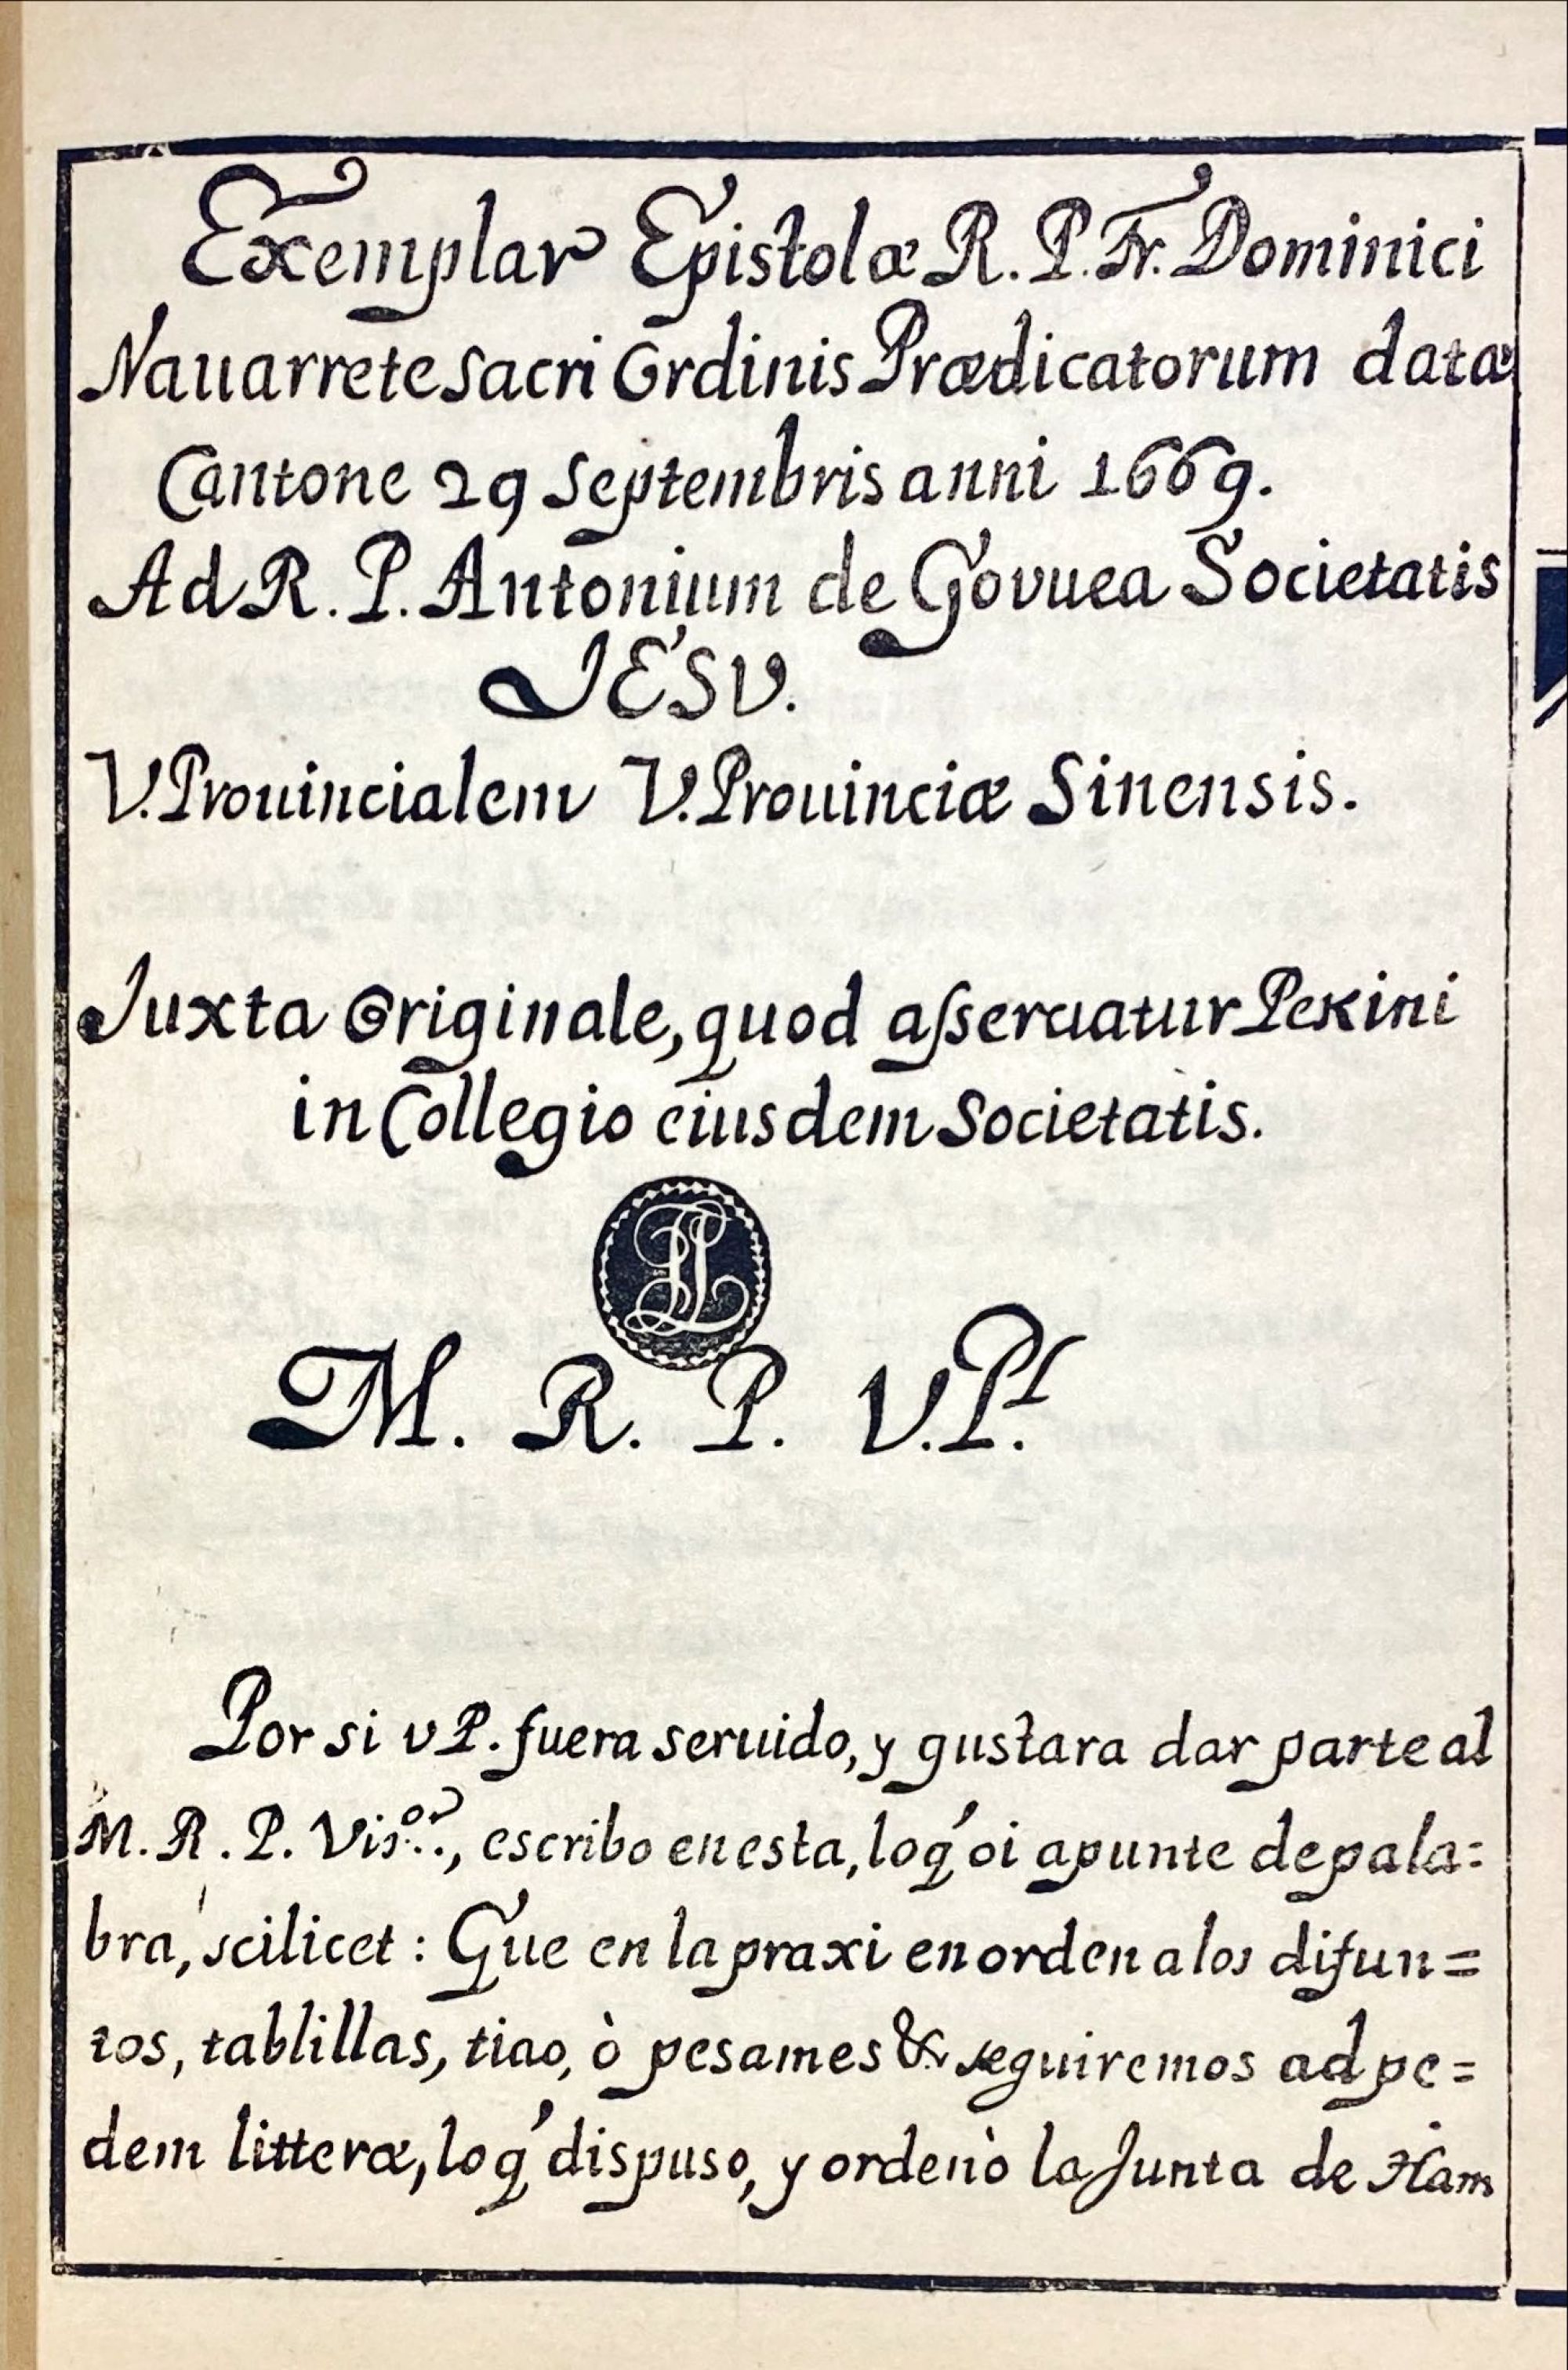 Exemplar Epistolæ R. P. Fr. Dominici
Nauarrete Sacri Ordinis Prædicatorum datæ
Cantone 29 Septembris anni 1669.
Ad R. P. Antonium de Govuea Societatis
JESV.
V. Prouincialem V. Prouinciæ Sinensis.
Juxta Originale, quod aſseruatur Pekini
in Collegio eiusdem Societatis.
M. R. P. V. Pˡ.
Por si v P. fuera seruido, y gustara dar parte al
M. R. P. Visᵒʳ., escribo en esta, lo q́ oi apunte de pala=
bra, scilicet: Que en la praxi en orden a los difun=
tos, tablillas, tiao, ò pesames &. seguiremos ad pe=
dem litteræ, lo q́ dispuso, y ordenò la Junta de Ham